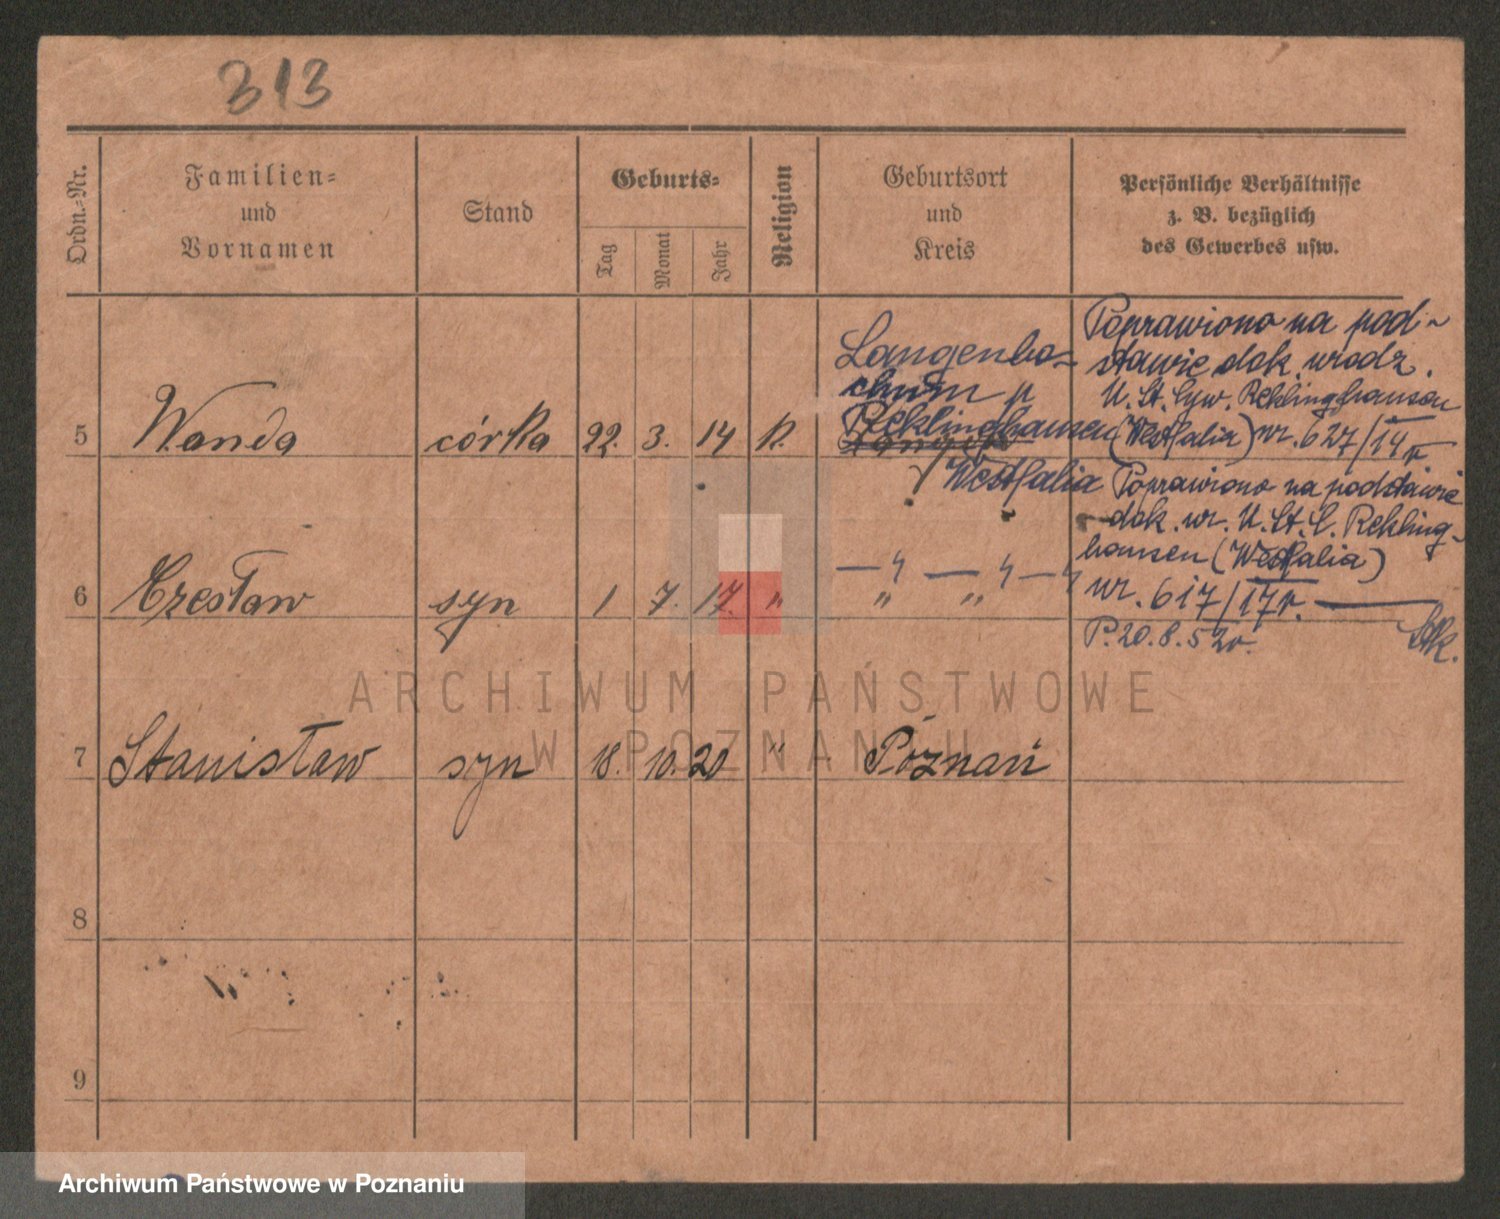 313
Ordn.-Nr.
Familien-
und
Vornamen
Stand
Geburts-
Tag
Monat
Jahr
Religion
Geburtsort
und
Kreis
Persönliche Verhältnisse
z. B. bezüglich
des Gewerbes usw.
5 Wanda córka 22. 3. 14 k.
Langenbo-
chum p
Reklinghausen
Westfalia
Poprawiono na pod-
stawie dok. urodz.
U. St. Cyw. Reklinghausen
(Westfalia) nr. 627/14 r
6 Czesław syn 1 7. 17. " " "
Poprawiono na podstawie
dok. ur. U. St. C. Rekling-
hausen (Westfalia)
nr. 617/17 r.
P. 20.8.52 r.
7 Stanisław syn 18. 10. 20 " Poznań
8
9
ARCHIWUM PAŃSTWOWE
W POZNANIU
Archiwum Państwowe w Poznaniu